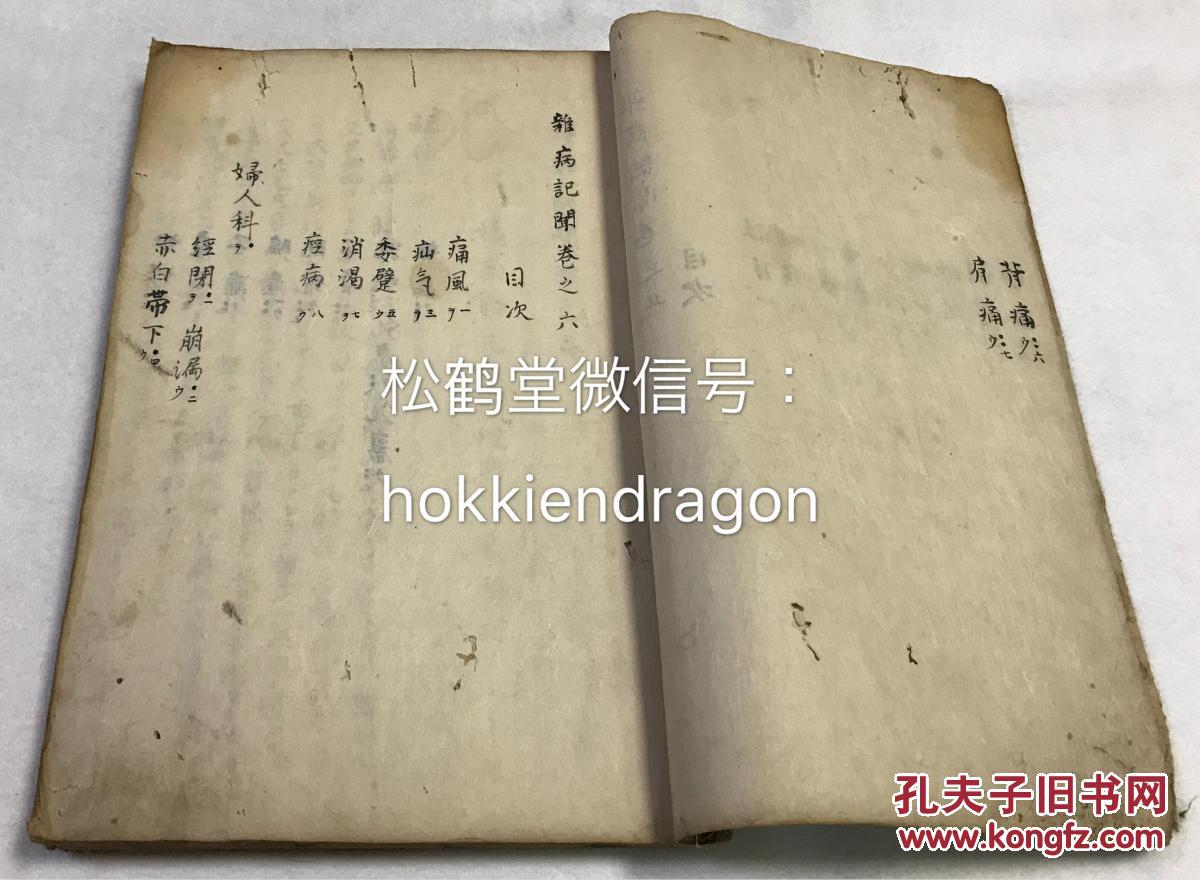 背痛ウ六
肩痛ウ七
雜病記聞卷之六
目次
痛風ヲ一
疝气ヲ三
委躄ウ五
消渴ヲ七
痙病ウ八
婦人科ヲ
經閉ヲ一 崩漏ウ二
赤白帯下ウ四
松鹤堂微信号：
hokkiendragon
孔夫子旧书网
www.kongfz.com